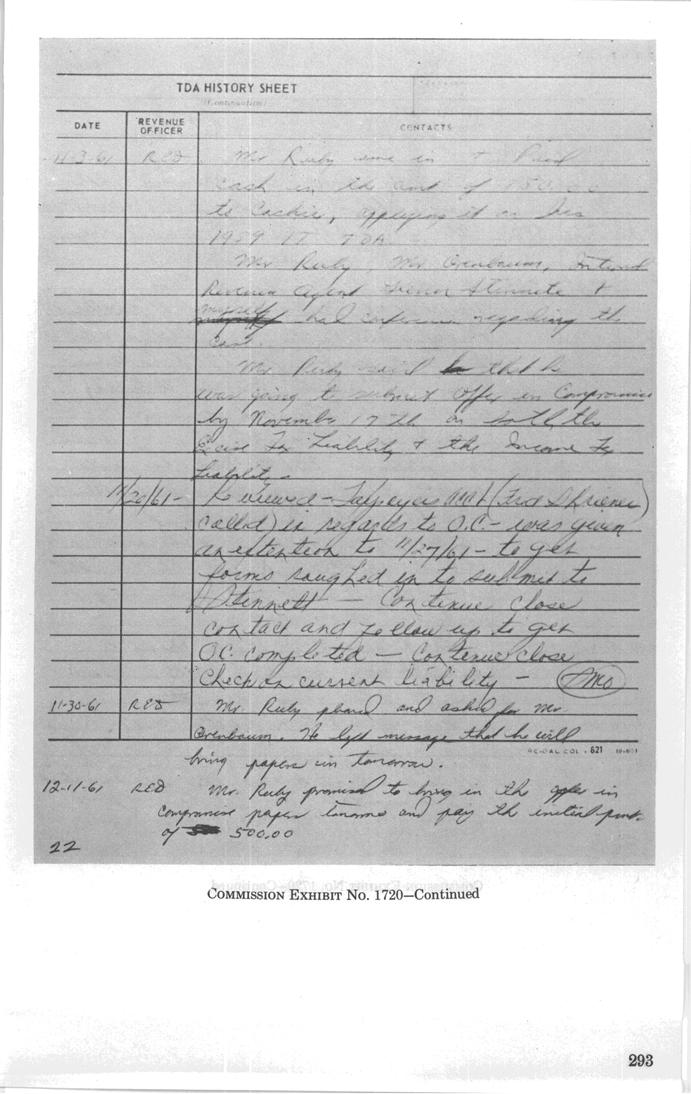 TDA HISTORY SHEET
(Continuation)
DATE
REVENUE OFFICER
CONTACTS
11-3-61 RED Mr Ruby came in + Paid
cash in the amt of 150.00
to Cashier, applying it on his
1959 IT TDA
Mr Ruby, Mr Orenbaum, Internal
Revenue Agent Stinnete +
myself had conference regarding the
case.
Mr Ruby said that he
was going to submit Offer in Compromise
by November 17th on both the
Excise Tax Liability + the Income Tax
Liability -
11/20/61 - Reviewed - Taxpayers acct (
called) in regards to O.C. - was given
an extention to 11/27/61 - to get
forms roughed in to submit to
Stinnett - Continue close
contact and follow up to get
O.C. completed - Continue close
Check on current liability -
11-30-61 RED Mr. Ruby phoned and asked for Mr.
Orenbaum. He left message that he will
bring papers in tomorrow.
12-11-61 RED Mr. Ruby promised to bring in the offer in
compromise papers tomorrow and pay the initial pmt.
of 500.00
22
COMMISSION EXHIBIT No. 1720—Continued
293